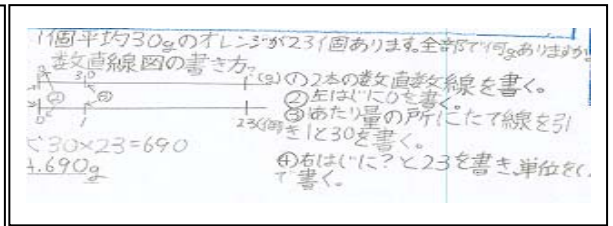 1個平均30gのオレンジが23個あります。全部で何gありますか。
数直線図の書き方
0 30 (g)
0 1 23(個)
①2本の数直数線を書く。
②左はじに0を書く。
③あたり量の所にたて線を引
き1と30を書く。
④右はじに?と23を書き、単位を
て書く。
30×23=690
690g